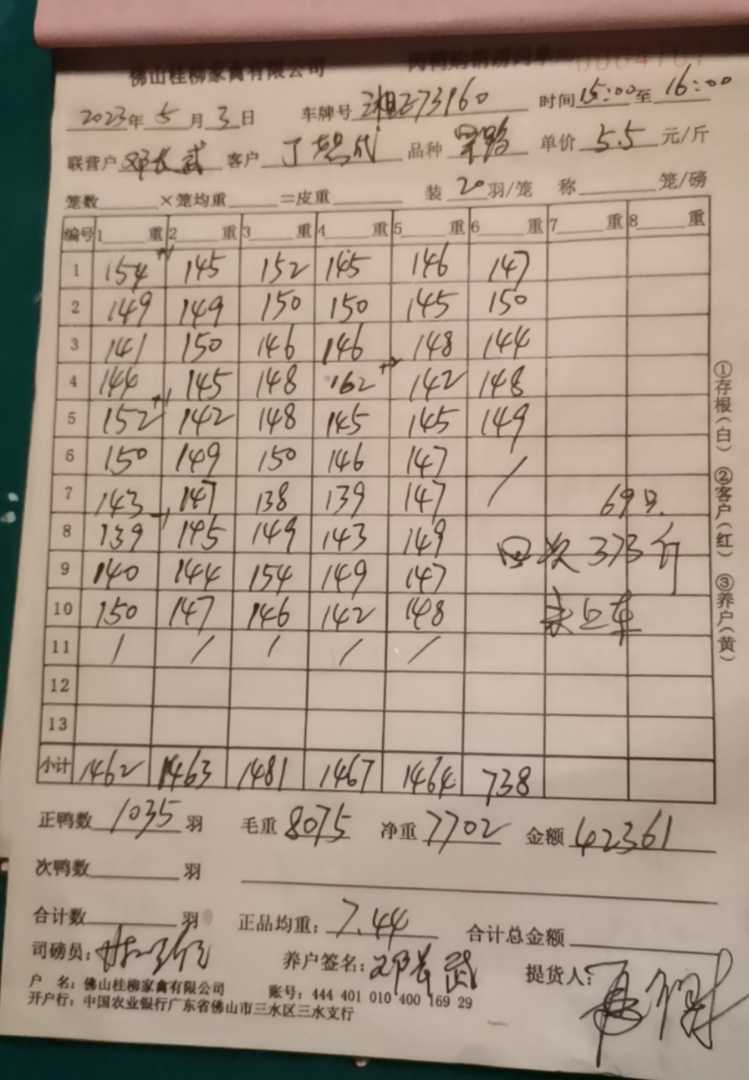 佛山桂柳家禽有限公司
2023年5月3日 车牌号 湘E73960 时间15:00至16:00
联营户 邓长武 客户 品种 单价 5.5 元/斤
笼数 ×笼均重 =皮重 装 20 羽/笼 称 笼/磅
编号 1 重 2 重 3 重 4 重 5 重 6 重 7 重 8 重
1 154 +1 145 152 145 146 147
2 149 149 150 150 145 150
3 141 150 146 146 148 144
4 144 145 148 162 142 148
5 152 +1 142 148 145 145 149
6 150 149 150 146 147 /
7 143 147 138 139 147 69只
8 139 -1 145 149 143 149 373斤
9 140 144 154 149 147
10 150 147 146 142 148 未上车
11 / / / / /
12
13
小计 1462 1463 1481 1467 1464 738
正鸭数 1035 羽 毛重 8075 净重 7702 金额 42361
次鸭数 羽
合计数 羽 正品均重: 7.44 合计总金额
司磅员: 养户签名: 邓长武 提货人:
户 名: 佛山桂柳家禽有限公司 账号: 444 401 010 400 169 29
开户行: 中国农业银行广东省佛山市三水区三水支行
①存根(白) ②客户(红) ③养户(黄)